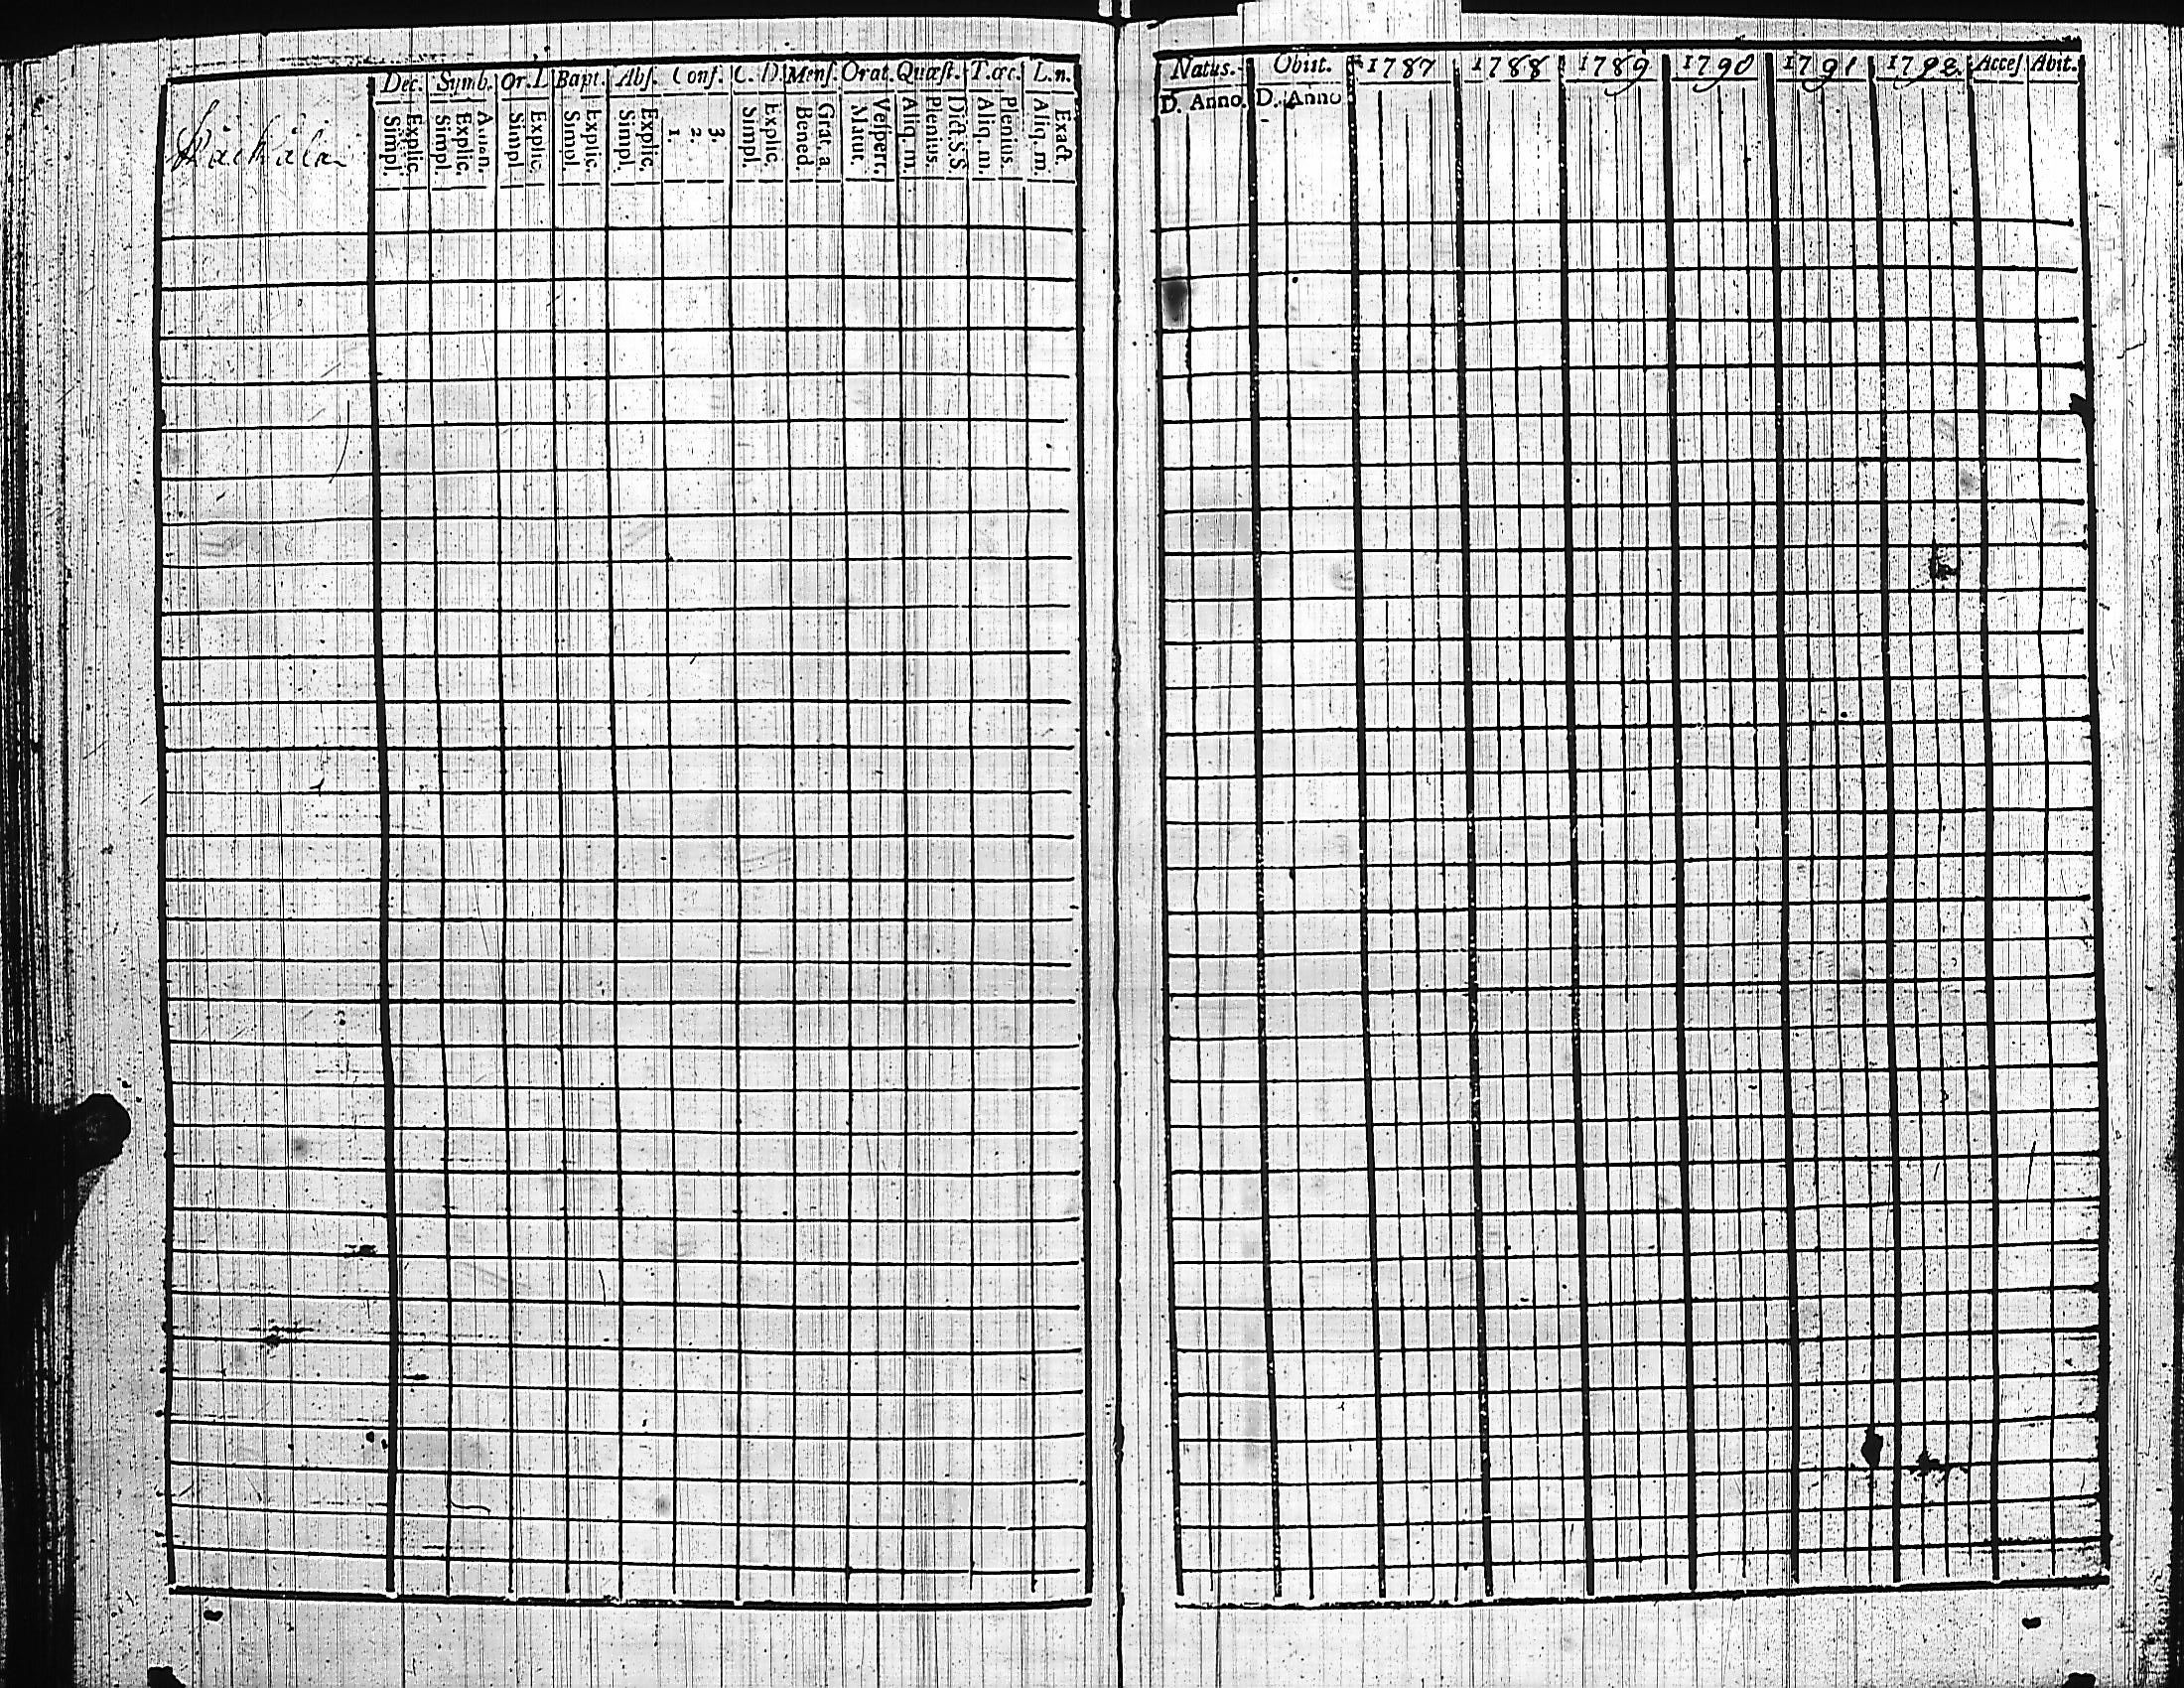 Dec. Symb. Or. D Bapt. Abſ. Conf. C. D. Menſ. Orat. Quæſt. T. œc. L. n.
Simpl. Explic. Simpl. Explic. Athan. Simpl Explic. Simpl. Explic. Simpl. Explic. 1. 2. 3. Simpl. Explic. Bened. Grat. a. Matut. Veſpert. Aliq. m. Plenius. Dict. S. S Aliq. m. Plenius. Aliq. m. Exact.
Natus. Obiit. 1787 1788 1789 1790 1791 1792. Acceſ Abit.
D. Anno. D. Anno